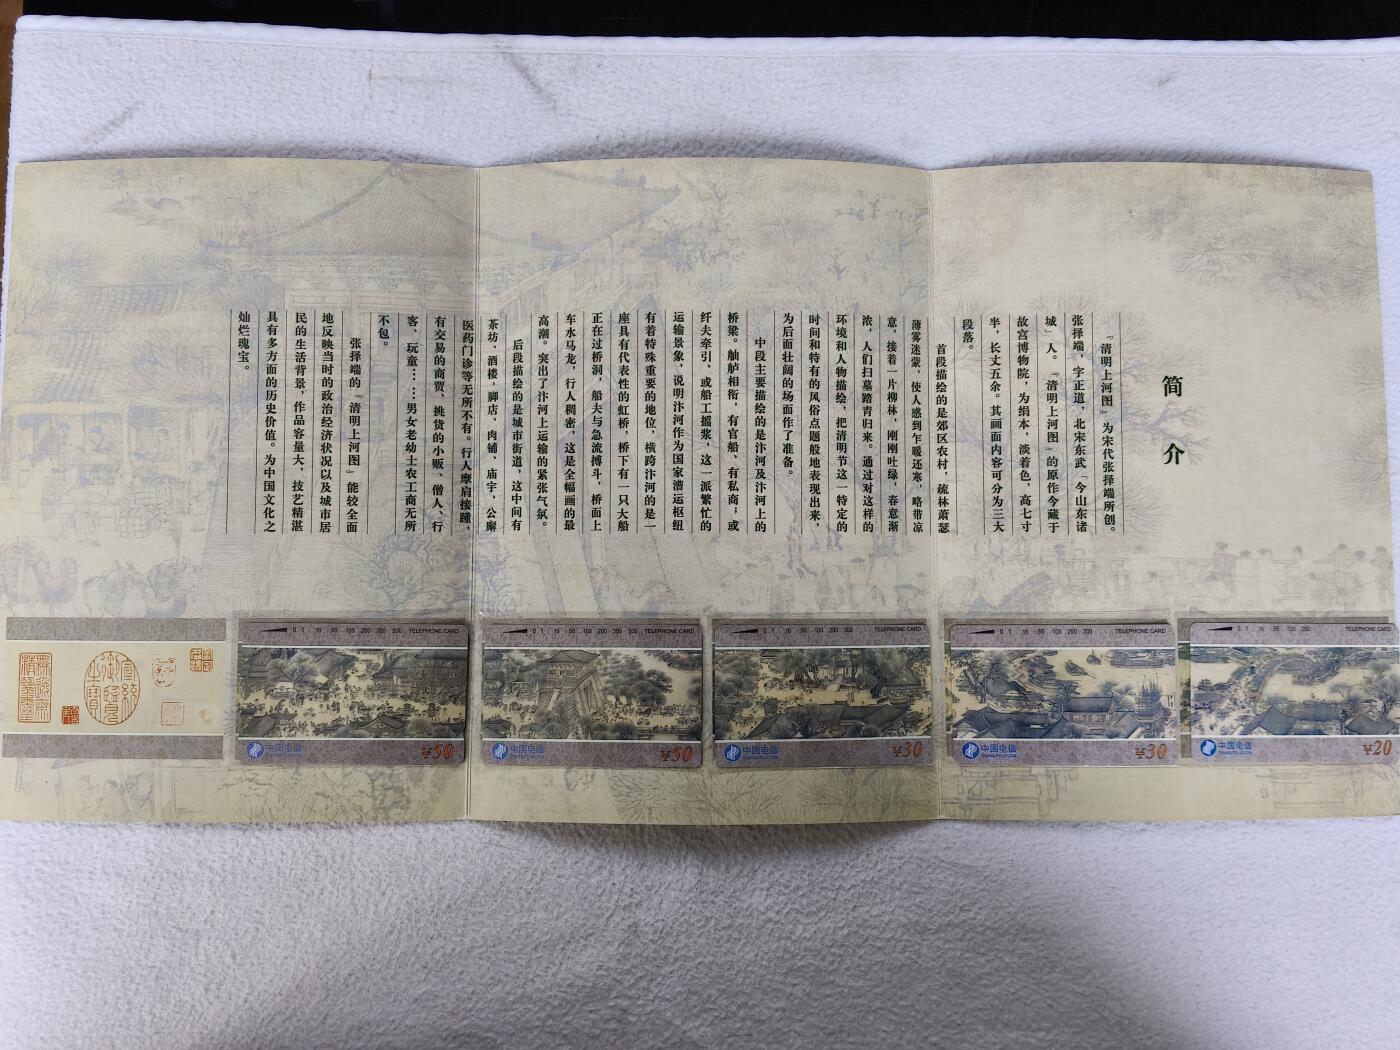 简介
『清明上河图』为宋代张择端所创。
张择端，字正道，北宋东武（今山东诸
城）人。『清明上河图』的原作今藏于
故宫博物院，为绢本，淡着色，高七寸
半，长丈五余。其画面内容可分为三大
段落。
首段描绘的是郊区农村，疏林萧瑟
薄雾迷蒙，使人感到乍暖还寒，略带凉
意，接着一片柳林，刚刚吐绿，春意渐
浓，人们扫墓踏青归来。通过对这样的
环境和人物描绘，把清明节这一特定的
时间和特有的风俗点题般地表现出来，
为后面壮阔的场面作了准备。
中段主要描绘的是汴河及汴河上的
桥梁。舳舻相衔，有官船、有私商；或
纤夫牵引、或船工摇浆，这一派繁忙的
运输景象，说明汴河作为国家漕运枢纽
有着特殊重要的地位，横跨汴河的是一
座具有代表性的虹桥，桥下有一只大船
正在过桥洞，船夫与急流搏斗，桥面上
车水马龙，行人稠密，这是全幅画的最
高潮。突出了汴河上运输的紧张气氛。
后段描绘的是城市街道，这中间有
茶坊、酒楼，脚店，肉铺、庙宇、公廨
医药门诊等无所不有。行人摩肩接踵，
有交易的商贾、挑货的小贩、僧人、行
客、玩童……男女老幼士农工商无所
不包。
张择端的『清明上河图』能较全面
地反映当时的政治经济状况以及城市居
民的生活背景，作品容量大，技艺精湛
具有多方面的历史价值。为中国文化之
灿烂瑰宝。
0 1 10 50 100 200 300 500 TELEPHONE CARD
中国电信
CHINA TELECOM
¥50
0 1 10 50 100 200 300 500 TELEPHONE CARD
中国电信
CHINA TELECOM
¥50
0 1 10 50 100 200 300 TELEPHONE CARD
中国电信
CHINA TELECOM
¥30
0 1 10 50 100 200 300 TELEPHONE CARD
中国电信
CHINA TELECOM
¥30
0 1 10 50 100 200 TELEPHONE CARD
中国电信
CHINA TELECOM
¥20